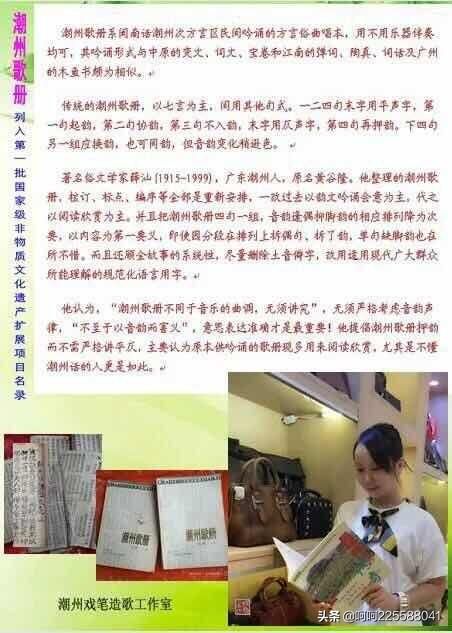 潮州歌册
列入第一批国家级非物质文化遗产扩展项目名录
潮州歌册系闽南语潮州次方言区民间吟诵的方言俗曲唱本，用不用乐器伴奏
均可，其吟诵形式与中原的变文、词文、宝卷和江南的弹词、陶真、词话及广州
的木鱼书颇为相似。
传统的潮州歌册，以七言为主，间用其他句式。一二四句末字用平声字，第
一句起韵，第二句协韵，第三句不入韵，末字用仄声字，第四句再押韵。下四句
另一组应换韵，也可同韵，但音韵变化稍逊色。
著名俗文学家薛汕(1915-1999)，广东潮州人，原名黄谷隆。他整理的潮州歌
册，校订、标点、编序等全部是重新安排，一改过去以韵文吟诵会意为主，代之
以阅读欣赏为主。并且把潮州歌册四句一组，音韵逢偶押脚韵的相应排列降为次
要，以内容为第一要义，即使因分段在排列上拆偶句、拆了韵，单句缺脚韵也在
所不惜。而且还顾全故事的系统性，尽量删除土音僻字，改用适用现代广大群众
所能理解的规范化语言用字。
他认为，“潮州歌册不同于音乐的曲调，无须讲究”，无须严格考虑音韵声
律，“不至于以音韵而害义”，意思表达准确才是最重要！他提倡潮州歌册押韵
而不需严格讲平仄，主要认为原本供吟诵的歌册现多用来阅读欣赏，尤其是不懂
潮州话的人更是如此。
潮州歌册
潮州歌册
潮州戏笔造歌工作室
头条 @呵呵225588041